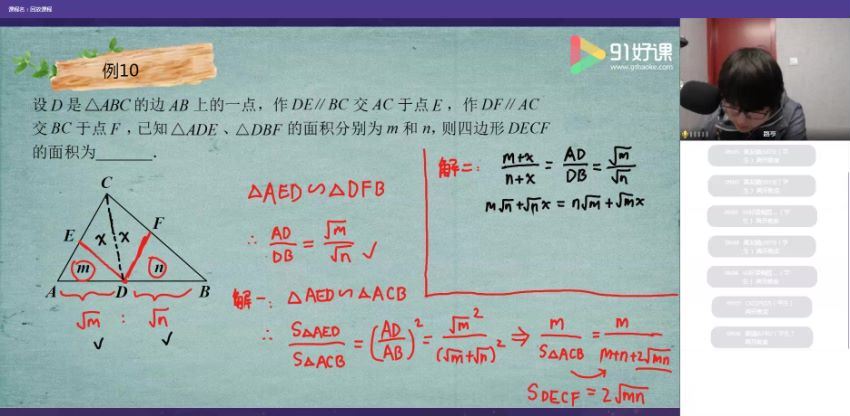 课程名：回放课程
例10
91好课
www.91haoke.com
设 D 是 △ABC 的边 AB 上的一点，作 DE∥BC 交 AC 于点 E，作 DF∥AC
交 BC 于点 F，已知 △ADE、△DBF 的面积分别为 m 和 n, 则四边形 DECF
的面积为______.
C
E
F
x x
m
n
A
D
B
√m : √n
✓ ✓
△AED∽△DFB
∴ AD/DB = √m/√n ✓
解一: △AED∽△ACB
∴ S△AED/S△ACB = (AD/AB)² = √m²/(√m+√n)² ⇒ m/S△ACB = m/m+n+2√mn
S DECF = 2√mn
解二: m+x/n+x = AD/DB = √m/√n
m√n+√n x = n√m+√m x